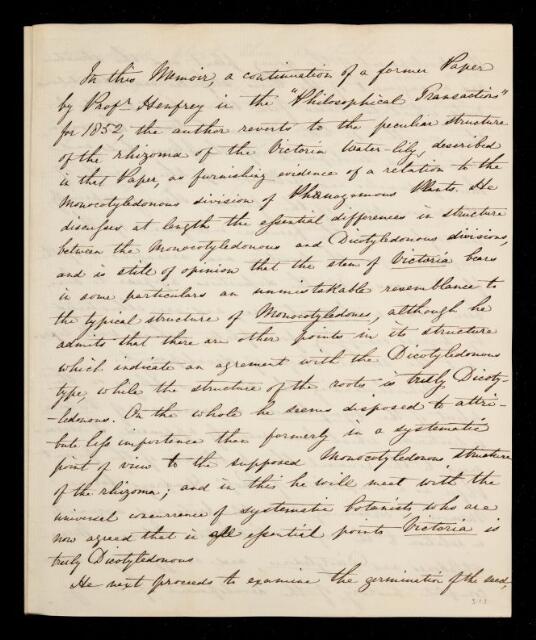 In this Memoir, a continuation of a former Paper
by Profr. Henfrey in the "Philosophical Transactions"
for 1852, the author reverts to the peculiar structure
of the rhizoma of the Victoria Water-lily, described
in that Paper, as furnishing evidence of a relation to the
Monocotyledonous division of Phanogamous Plants. He
discusses at length the essential differences in structure
between the Monocotyledonous and Dicotyledonous divisions,
and is still of opinion that the stem of Victoria bears
in some particulars an unmistakable resemblance to
the typical structure of Monocotyledones, although he
admits that there are other points in its structure
which indicate an agreement with the Dicotyledonous
type, while the structure of the roots is truly Dicoty-
-ledonous. On the whole he seems disposed to attri-
bute less importance than formerly in a systematic
point of view to the supposed Monocotyledonous structure
of the rhizoma; and in this he will meet with the
universal concurrence of systematic botanists, who are
now agreed that in all essential points Victoria is
truly Dicotyledonous
He next proceeds to examine the germination of the seed,